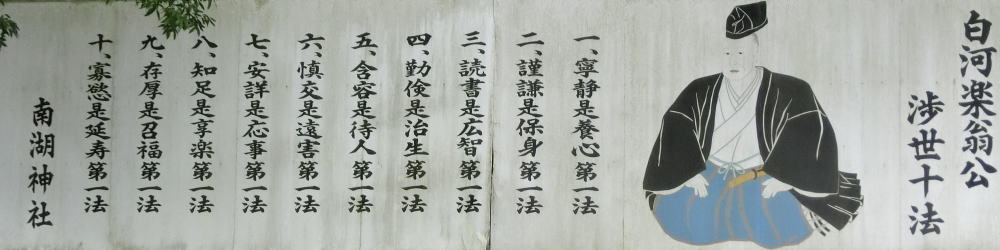 白河楽翁公
渉世十法
一、寧静是養心第一法
二、謹謙是保身第一法
三、読書是広智第一法
四、勤倹是治生第一法
五、含容是待人第一法
六、慎交是遠害第一法
七、安詳是応事第一法
八、知足是享楽第一法
九、存厚是召福第一法
十、寡慾是延寿第一法
南湖神社